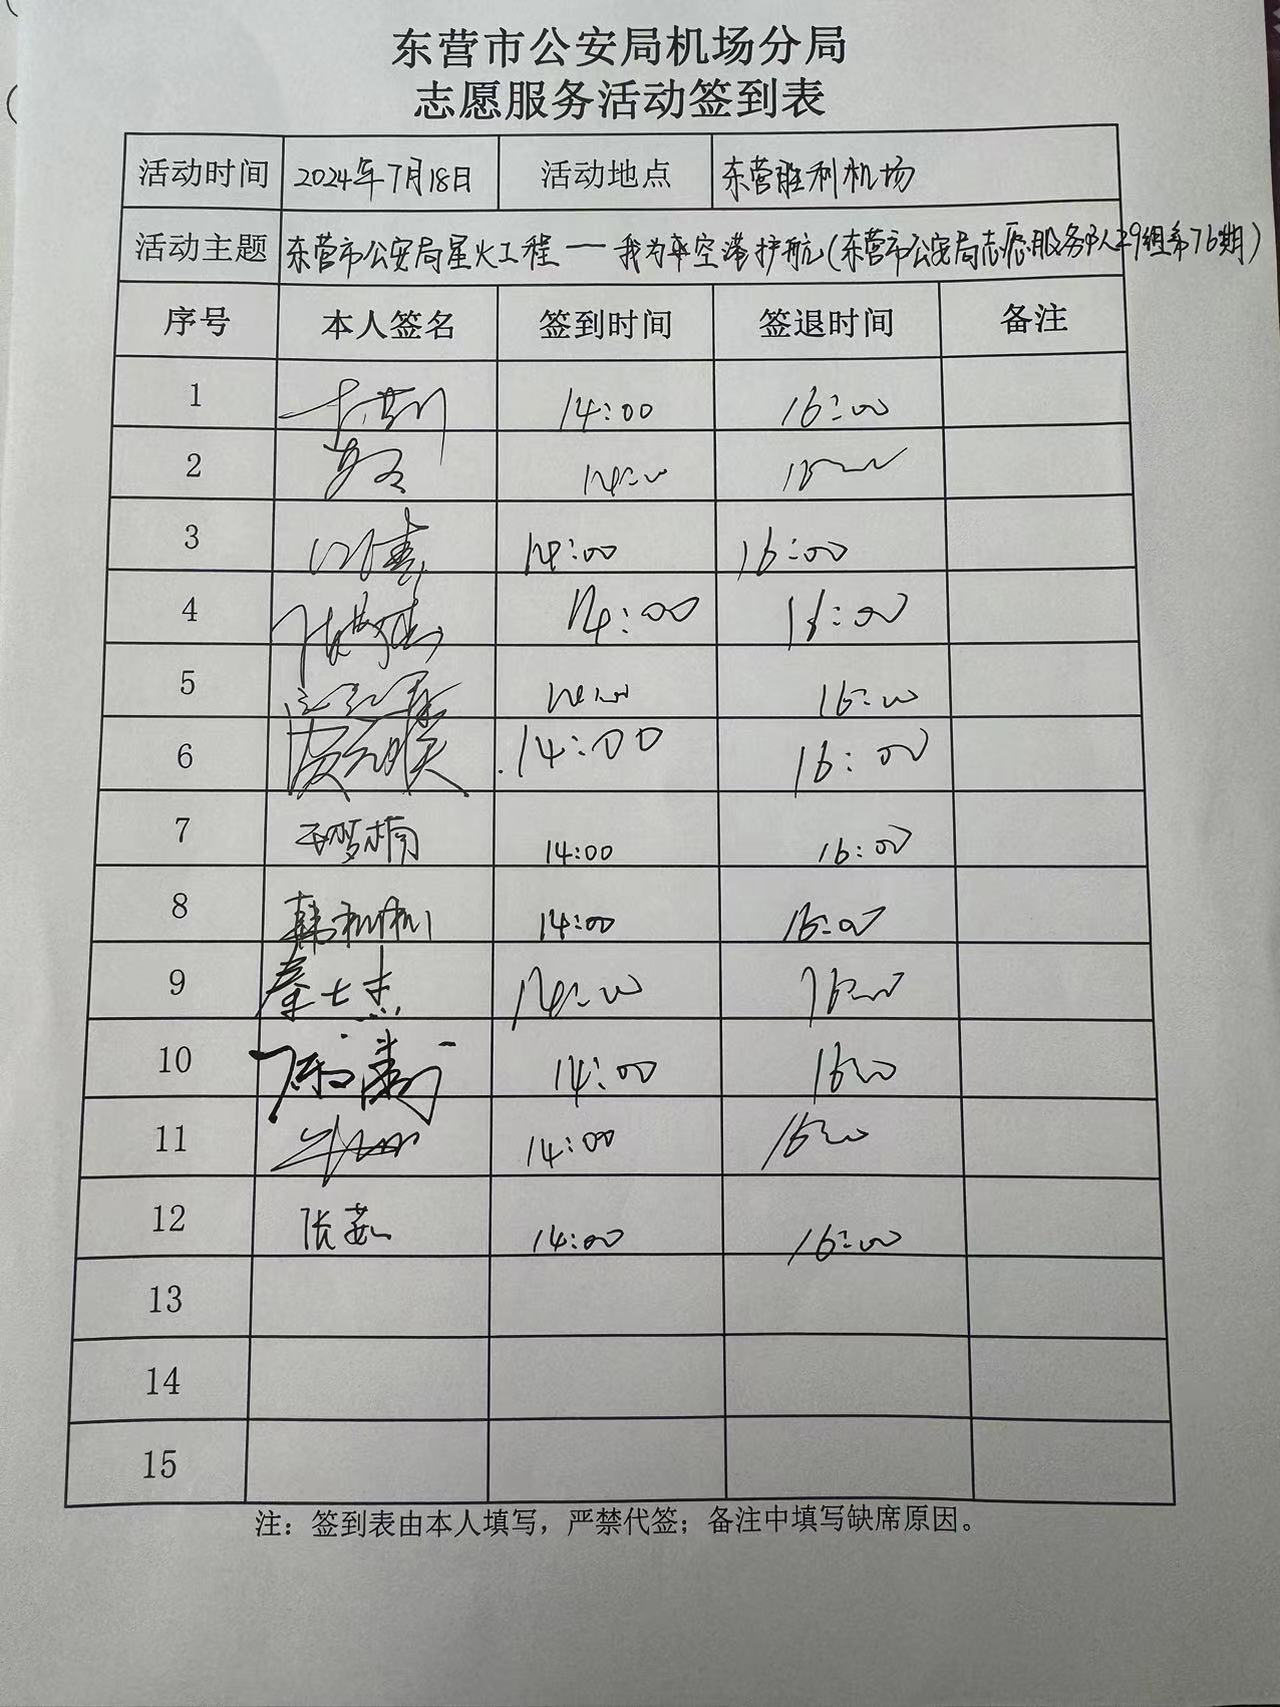 东营市公安局机场分局
志愿服务活动签到表
活动时间 2024年7月18日 活动地点 东营胜利机场
活动主题 东营市公安局星火工程——我为平安空港护航(东营市公安局志愿服务队29组第76期)
序号 本人签名 签到时间 签退时间 备注
1 14:00 16:00
2 14:00 16:00
3 14:00 16:00
4 14:00 16:00
5 14:00 16:00
6 14:00 16:00
7 14:00 16:00
8 14:00 16:00
9 秦士杰 14:00 16:00
10 14:00 16:00
11 14:00 16:00
12 张茹 14:00 16:00
13
14
15
注：签到表由本人填写，严禁代签；备注中填写缺席原因。